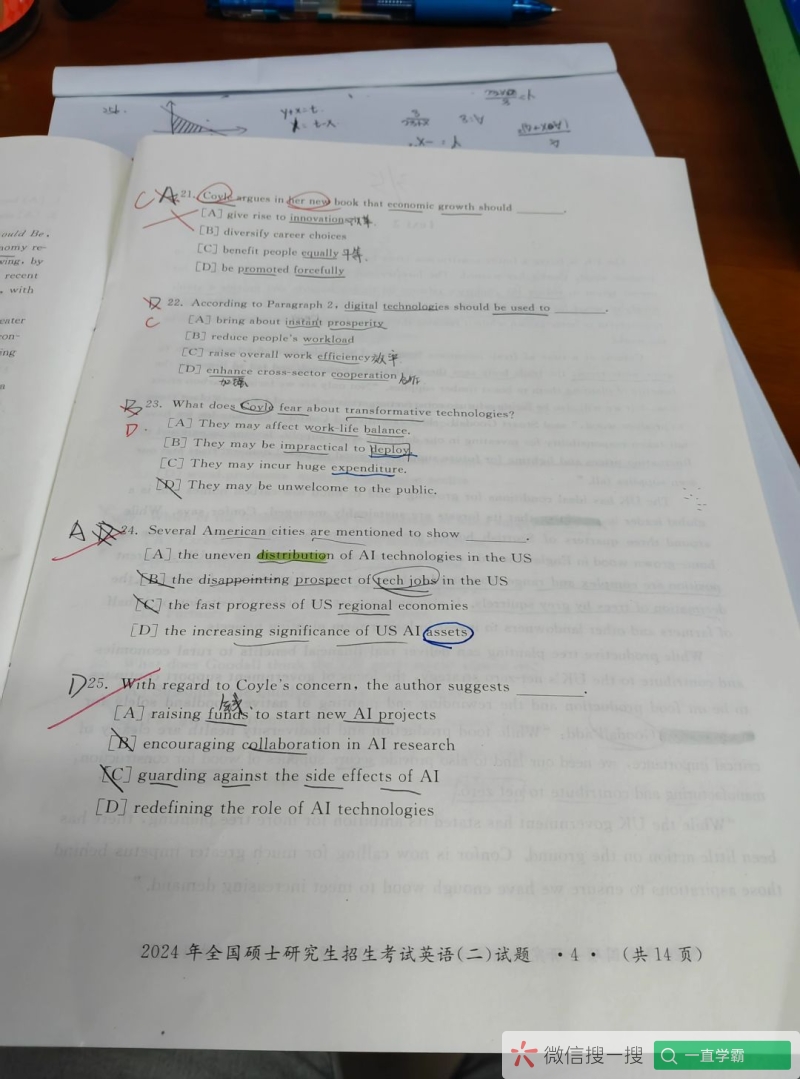 256.
y+x=t
C A 21. Coyle argues in her new book that economic growth should ______.
[A] give rise to innovations
[B] diversify career choices
[C] benefit people equally 平等.
[D] be promoted forcefully
D 22. According to Paragraph 2, digital technologies should be used to ______.
C [A] bring about instant prosperity
[B] reduce people's workload
[C] raise overall work efficiency 效率
[D] enhance cross-sector cooperation 合作
加强
B 23. What does Coyle fear about transformative technologies?
D. [A] They may affect work-life balance.
[B] They may be impractical to deploy
[C] They may incur huge expenditure.
[D] They may be unwelcome to the public.
A 24. Several American cities are mentioned to show ______.
[A] the uneven distribution of AI technologies in the US
[B] the disappointing prospect of tech jobs in the US
[C] the fast progress of US regional economies
[D] the increasing significance of US AI assets
D 25. With regard to Coyle's concern, the author suggests ______.
钱
[A] raising funds to start new AI projects
[B] encouraging collaboration in AI research
[C] guarding against the side effects of AI
[D] redefining the role of AI technologies
2024年全国硕士研究生招生考试英语(二)试题 ·4· (共14页)
微信搜一搜 一直学霸